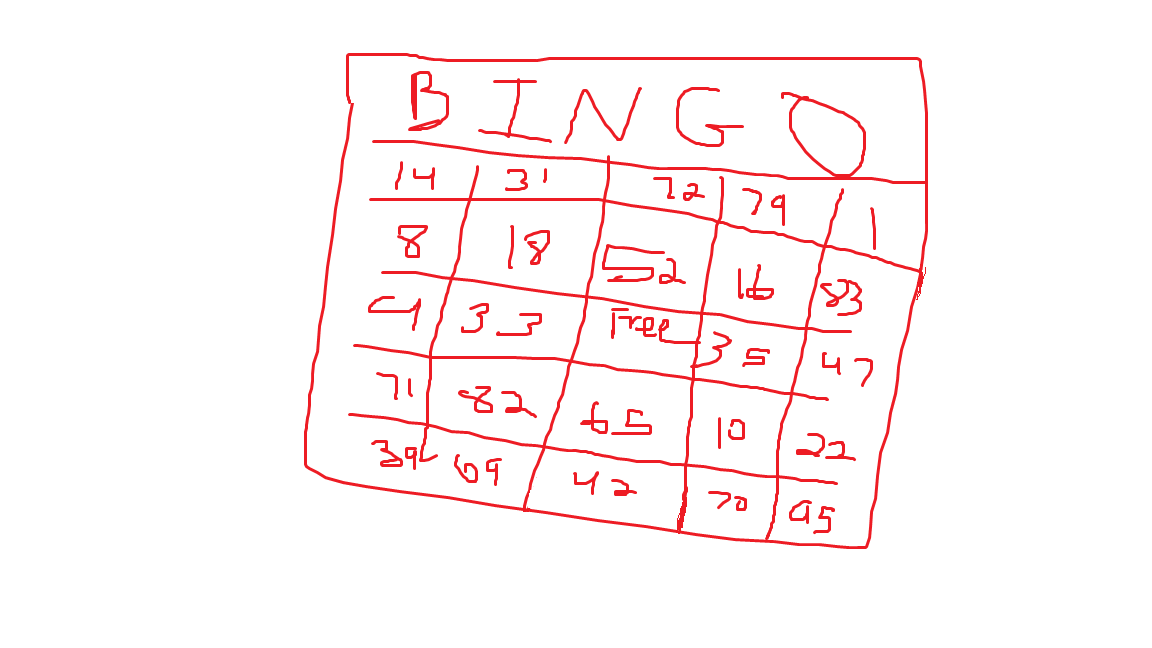 B I N G O
14 31 72 79 1
8 18 52 16 83
9 33 Free 35 47
71 82 65 10 22
39 69 42 70 95